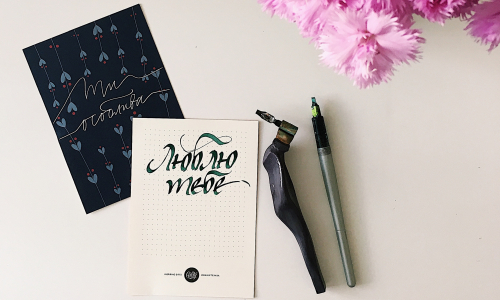 Ти
особлива
Люблю
тебе